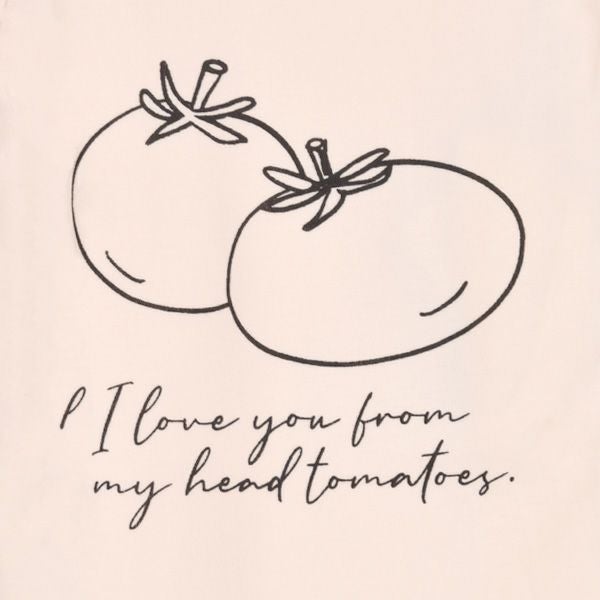 I love you from
my head tomatoes.